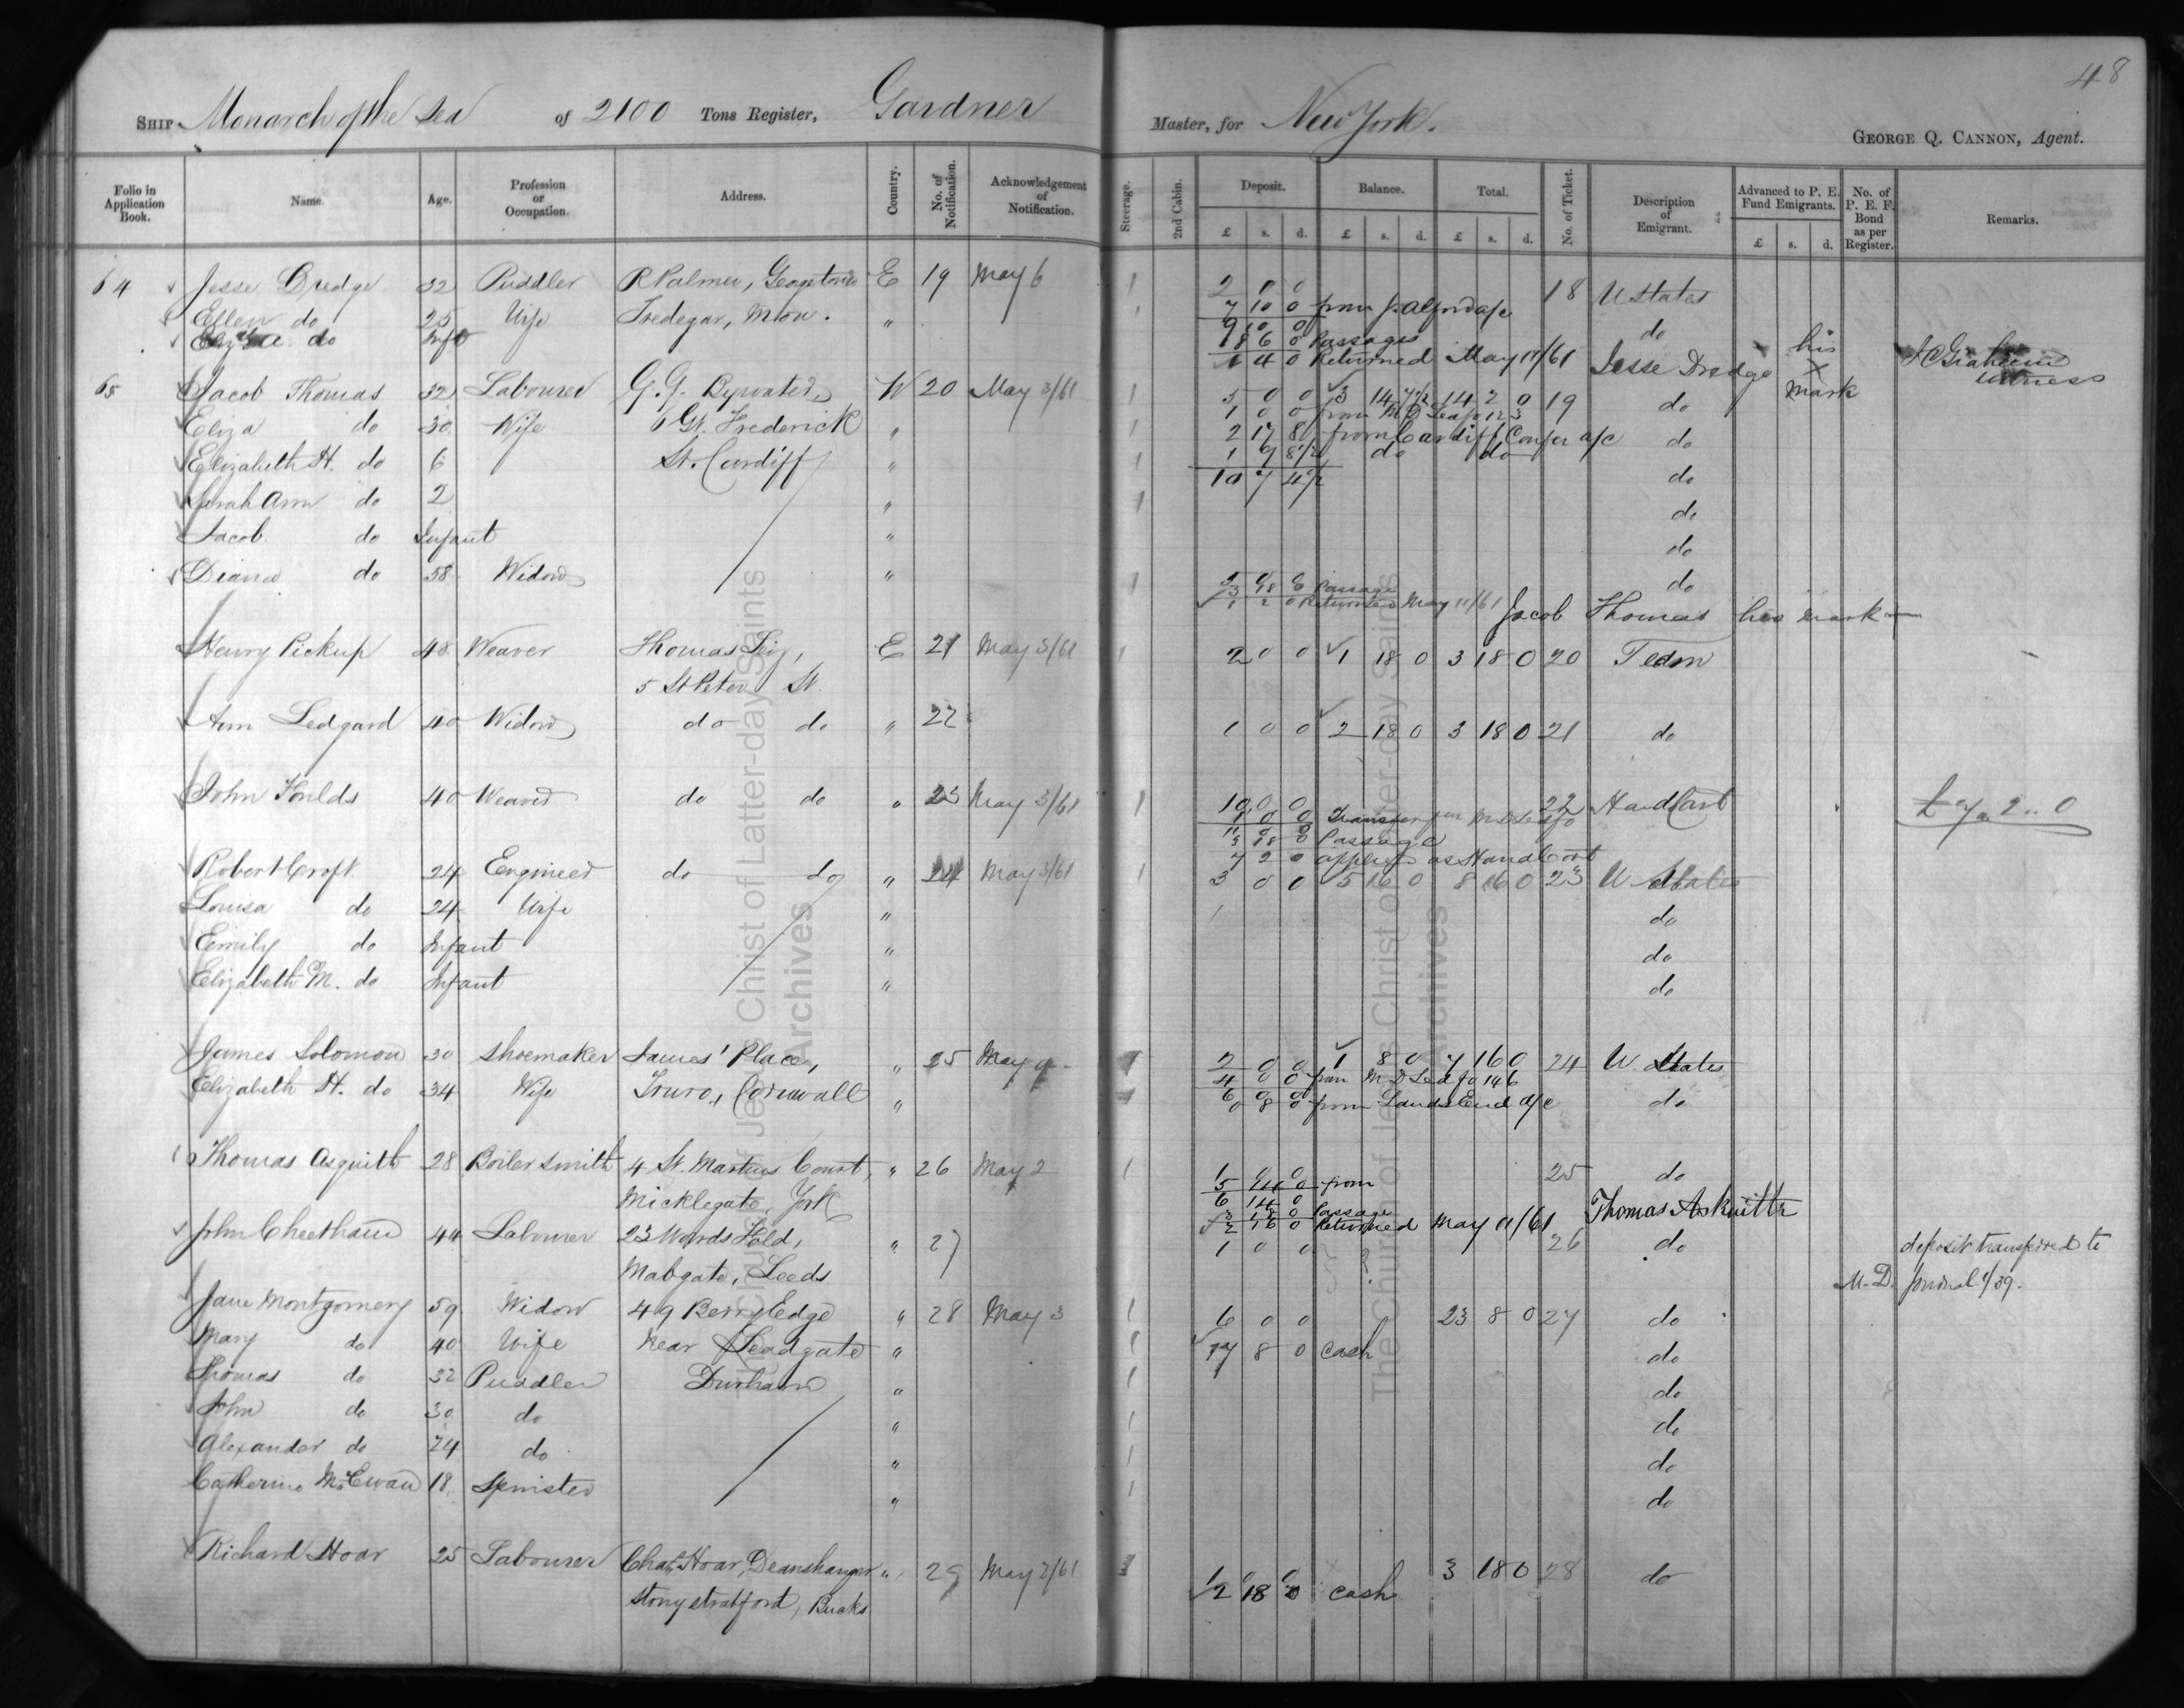 48
SHIP Monarch of the Sea of 2100 Tons Register, Gardner Master, for New York. GEORGE Q. CANNON, Agent.
Folio in Application Book. Name. Age. Profession or Occupation. Address. Country. No. of Notification. Acknowledgement of Notification. Steerage. 2nd Cabin. Deposit. Balance. Total. No. of Ticket. Description of Emigrant. Advanced to P. E. Fund Emigrants. No. of P. E. F. Bond as per Register. Remarks.
£ s. d. £ s. d. £ s. d. £ s. d.
64 Jesse Dredge 32 Puddler R Palmer, Georgetown E 19 May 6 1 2 0 0 18 U States
Ellen do 25 Wife Tredegar, Mon. " 1 7 10 0 from J. Alford a/c do
Eliza do Inft 9 10 0
8 6 0 Passages his
1 4 0 Returned May 11/61 Jesse Dredge X mark witness
65 Jacob Thomas 32 Labourer G. G. Bywater, W 20 May 3/61 1 5 0 0 3 14 7½ 14 2 0 19 do
Eliza do 30 Wife 6 Gt. Frederick " 1 1 0 0 from M D Led fo 123
2 17 8 from Cardiff Confer a/c do
Elizabeth H. do 6 St. Cardiff " 1 1 9 8½ do do
Sarah Ann do 2 " 1 10 7 4½ do
do
Jacob do Infant " do
Diana do 58 Widow " 1 do
3 18 0 Passage
1 2 0 Returned May 11/61 Jacob Thomas his mark
Henry Pickup 48 Weaver Thomas E 21 May 3/61 1 2 0 0 1 18 0 3 18 0 20 Team
5 St Peter St.
Ann Ledgard 40 Widow do do " 22 1 0 0 2 18 0 3 18 0 21 do
John Foulds 40 Weaver do do " 23 May 3/61 1 10 0 0 22 Hand Cart £7 " 2 " 0
1 0 0 Transfer from M D Led fo
11 0 0
3 18 0 Passage
7 2 0 applied as Handcart
Robert Croft 24 Engineer do do " 24 May 3/61 1 3 0 0 5 16 0 8 16 0 23 U States
Louisa do 24 Wife " 1 do
Emily do Infant " do
Elizabeth M. do Infant " do
James Solomon 30 Shoemaker James' Place, " 25 May 9 1 2 0 0 1 8 0 7 16 0 24 U. States
4 0 0 from M D Led fo 146
Elizabeth H. do 34 Wife Truro, Cornwall " 1 6 0 0
0 8 0 from Lands End a/c do
Thomas Asquith 28 Boiler smith 4 St. Martins Court, " 26 May 2 1 1 0 0 25 do
5 14 0 from
Micklegate, York 6 14 0
3 18 0 Passage
2 16 0 Returned May 11/61 Thomas Askuith
John Cheetham 44 Labourer 23 Wards Fold, " 27 1 0 0 26 do deposit transferred to
Mabgate, Leeds M. D. Journal 1/39.
Jane Montgomery 59 Widow 49 Berry Edge " 28 May 3 1 6 0 0 23 8 0 27 do
Mary do 40 Wife Near Leadgate " 1 17 8 0 Cash do
Thomas do 32 Puddler Durham " 1 do
John do 30 do " 1 do
Alexander do 24 do " 1 do
Catherine McEwan 18 Spinster " 1 do
Richard Hoar 25 Labourer Chas. Hoar, Deanshanger " 29 May 2/61 1 1 0 0 3 18 0 28 do
Stony stratford, Bucks 2 18 0 Cash
The Church of Jesus Christ of Latter-day Saints
Archives
The Church of Jesus Christ of Latter-day Saints
Archives